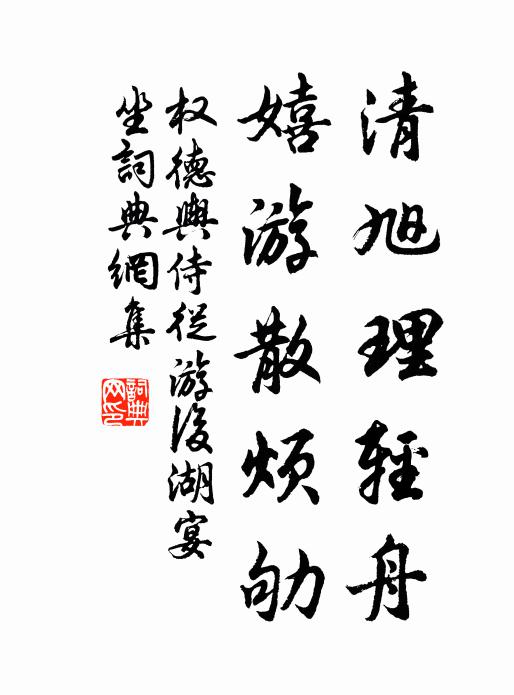 清旭理輕舟
嬉游散煩劬
权德輿侍從游後湖宴
坐詞典網集
詞典网印